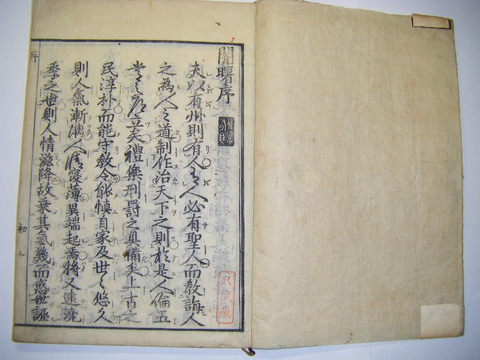 闇曙序
夫以有州則有人有人必有聖人而教誨人
之為人之道制作治天下之則於是人倫五
常之道立矣禮樂刑罰之具備矣上古之
民淳朴而能守教令能慎自家及世之悠久
則人氣漸澆人情變薄異端起焉將又逮澆
季之世則人情滋降故乗其氣幾而惑世誣
序
初一